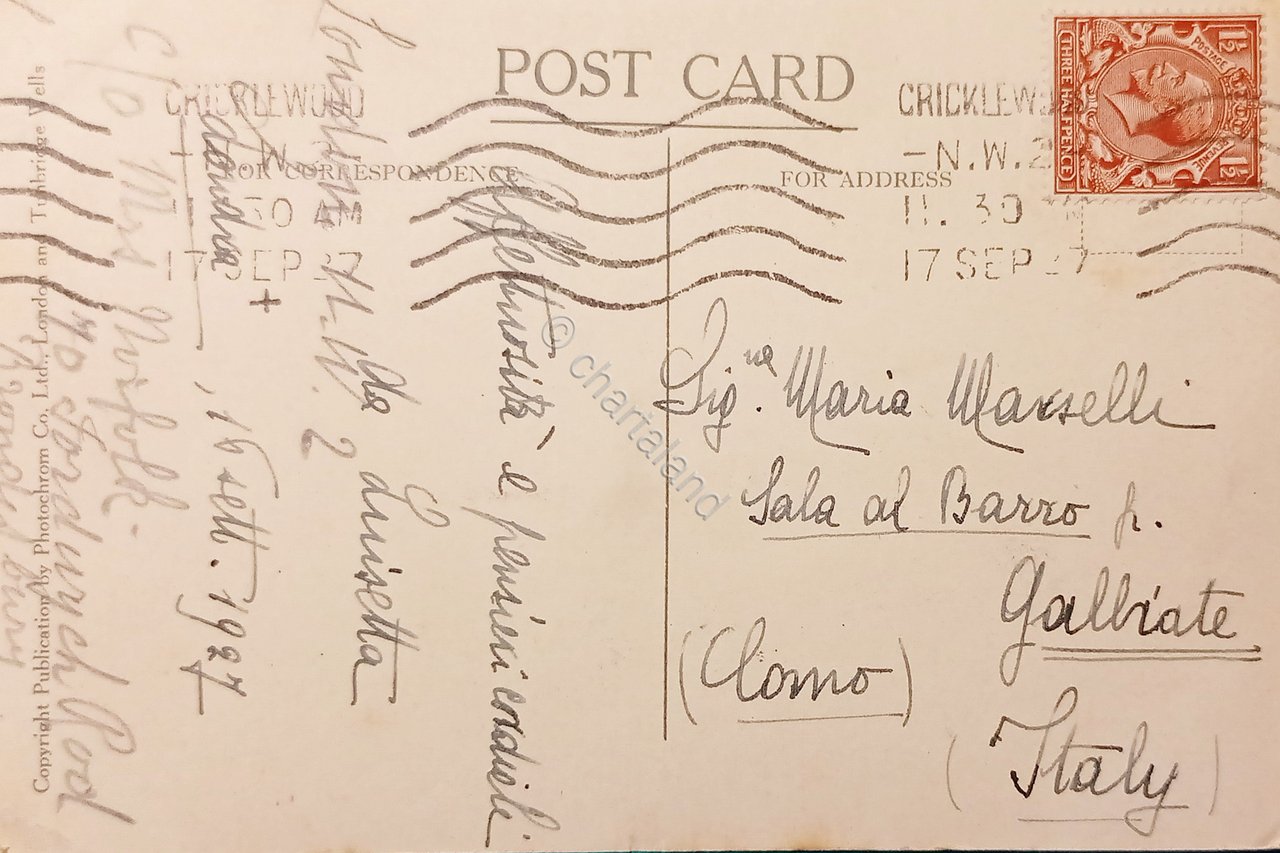 POST CARD
FOR CORRESPONDENCE
FOR ADDRESS
CRICKLEWOOD
N.W.
30
17 SEP 27
+
CRICKLEW
-N.W.2
11.30
17 SEP 27
POSTAGE
REVENUE
THREE HALFPENCE
1½
1½
Sig.na Maria Marselli
Sala al Barro p.
Galbiate
(Como)
(Italy)
Affettuosità e pensieri cordiali
da Luisetta
Londra, 16 sett. 1927
c/o Mrs Norfolk
70 Fordwych Road
London N.W. 2
Copyright Publication by Photochrom Co. Ltd., London and Tunbridge Wells
© chartaland